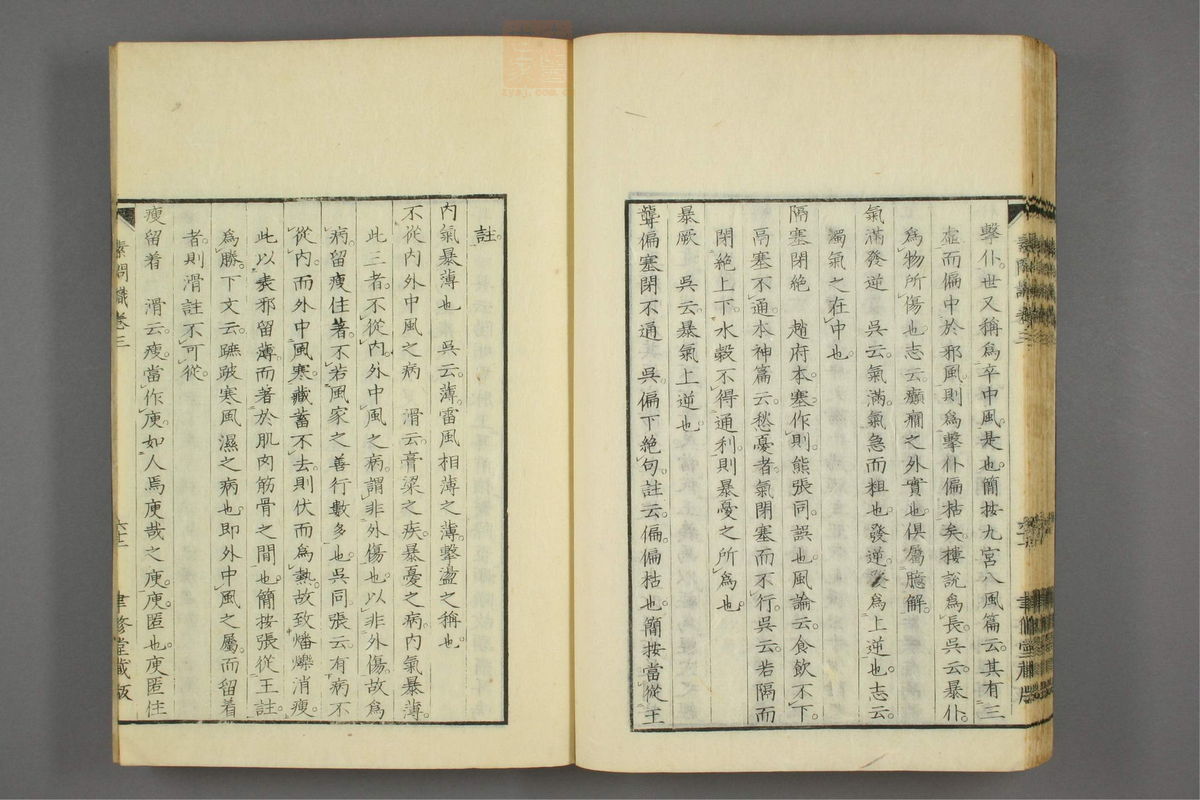 擊仆世又稱爲卒中風是也簡按九宮八風篇云其有三
虛而偏中於邪風則爲擊仆偏枯矣樓說爲長吳云暴仆
爲物所傷也志云癲癇之外實也俱屬臆解
氣滿發逆　吳云氣滿氣急而粗也發逆發爲上逆也志云
濁氣之在中也
隔塞閉絕　趙府本塞作則熊張同誤也風論云食飲不下
鬲塞不通本神篇云愁憂者氣閉塞而不行吳云若隔而
閉絕上下水穀不得通利則暴憂之所爲也
暴厥　吳云暴氣上逆也
聾偏塞閉不通　吳偏下絕句註云偏偏枯也簡按當從王
素問識卷三
聿修堂藏版
註
內氣暴薄也　吳云薄雷風相薄之薄擊盪之稱也
不從內外中風之病　滑云膏粱之疾暴憂之病內氣暴薄
此三者不從內外中風之病謂非外傷也以非外傷故爲
病留瘦住著不若風家之善行數多也吳同張云有病不
從內而外中風寒藏蓄不去則伏而爲熱故致燔爍消瘦
此以表邪留薄而著於肌肉筋骨之間也簡按張從王註
爲勝下文云蹠跛寒風濕之病也即外中風之屬而留着
者則滑註不可從
瘦留着　滑云瘦當作廋如人焉廋哉之廋廋匿也廋匿住
素問識卷三
六十二
聿修堂藏版